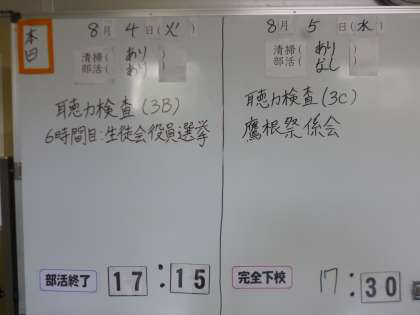 本日
8月 4日(火)
清掃(あり)
部活(あり)
聴力検査(3B)
6時間目:生徒会役員選挙
部活終了 17:15
8月 5日(水)
清掃(あり)
部活(なし)
聴力検査(3C)
鷹根祭係会
完全下校 17:30